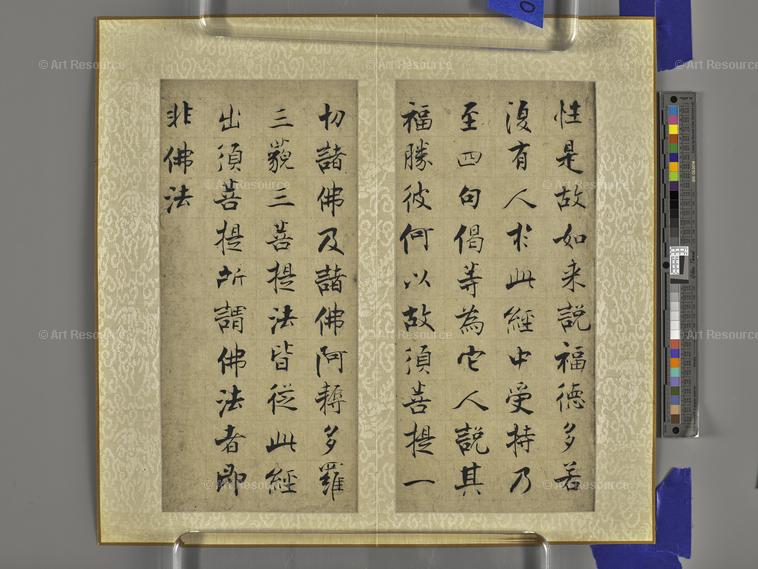 性是故如来說福德多若
復有人於此經中受持乃
至四句偈等為它人說其
福勝彼何以故須菩提一
切諸佛及諸佛阿耨多羅
三藐三菩提法皆從此經
出須菩提所謂佛法者即
非佛法
© Art Resource
© Art Resource
© Art Resource
© Art Resource
© Art Resource
© Art Resource
© Art Resource
© Art Resource
© Art Resource
© Art Resource
© Art Resource
© Art Resource